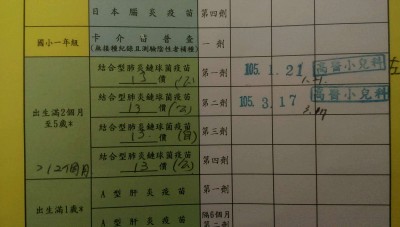 日本腦炎疫苗 第四劑
國小一年級 卡介苗普查 一劑
(無接種紀錄且測驗陰性者補種)
出生滿2個月
至5歲*
結合型肺炎鏈球菌疫苗 第一劑 105.1.21 高晉小兒科
13 價 (公)
結合型肺炎鏈球菌疫苗 第二劑 105.3.17 高晉小兒科
13 價 (公)
結合型肺炎鏈球菌疫苗 第三劑
13 價 (自)
>12個月
結合型肺炎鏈球菌疫苗 第四劑
13 價 (公)
出生滿1歲*
A型肝炎疫苗 第一劑
A型肝炎疫苗 隔6個月
第二劑